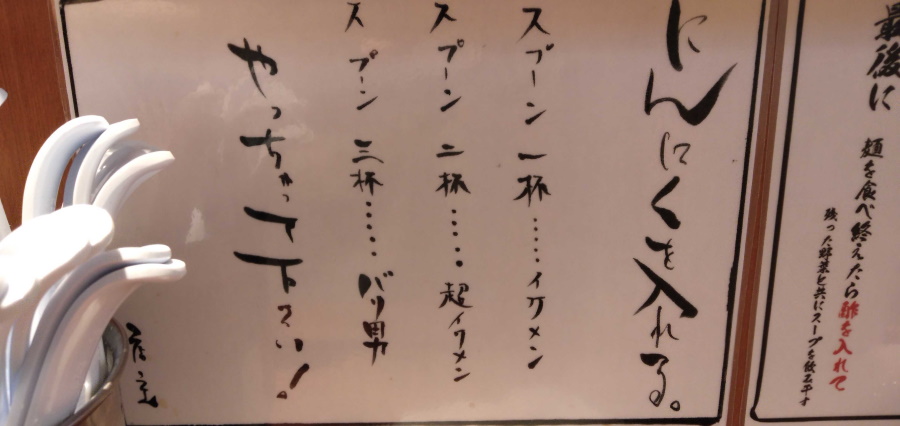 最後に
麺を食べ終えたら酢を入れて
残った野菜と共にスープを飲み干す
にんにくを入れる。
スプーン 一杯.....イケメン
スプーン 二杯.....超イケメン
スプーン 三杯.....バリ男
やっちゃって下さい!
店主